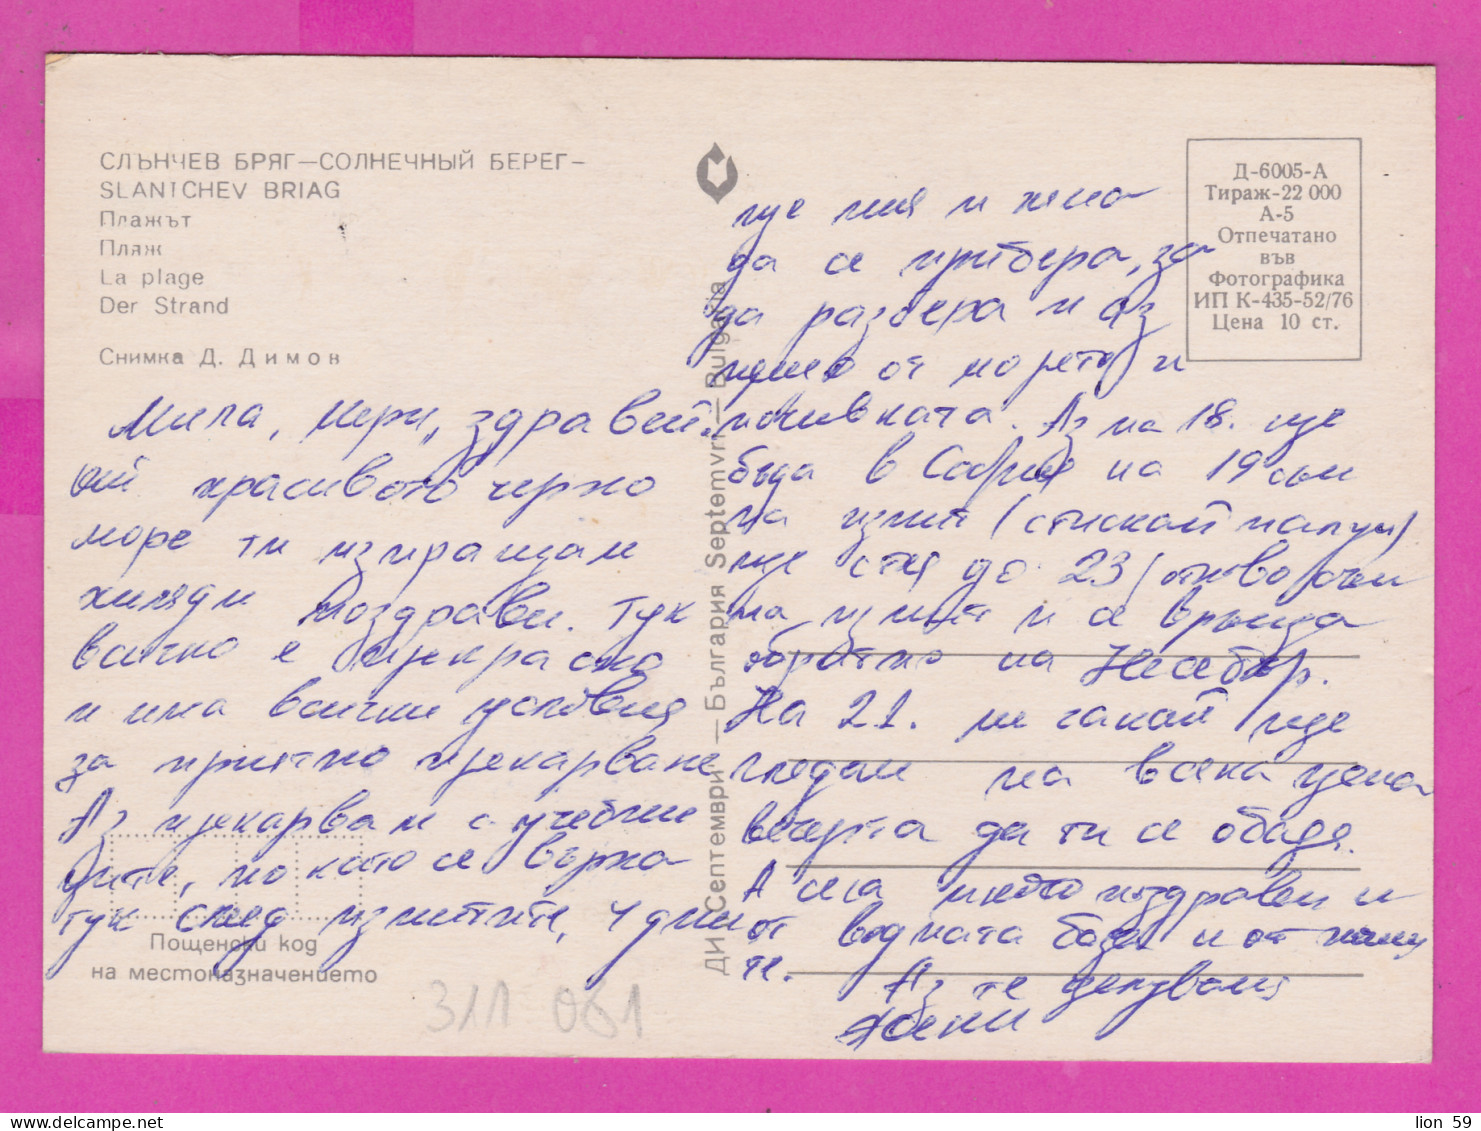 СЛЪНЧЕВ БРЯГ—СОЛНЕЧНЫЙ БЕРЕГ—
SLANTCHEV BRIAG
Плажът
Пляж
La plage
Der Strand
Снимка Д. Димов
Мила, Мери, здравей.
От красивото черно
море ти изпращам
хиляди поздрави. Тук
всичко е прекрасно
и има всички условия
за приятно прекарване
Аз прекарвам с учебни
ците, но като се върна
тук след изпитите, 4 дни
Пощенски код
на местоназначението
311 081
ДИ „Септември" — България Septemvri — Bulgaria
Д-6005-А
Тираж-22 000
А-5
Отпечатано
във
Фотографика
ИП К-435-52/76
Цена 10 ст.
ще и
да се прибера, за
да разбера и аз
нещо от морето и
почивката. Аз на 18. ще
бъда в София на 19 съм
на изпит (стискай палци)
ще стоя до 23 отново съм
на изпит и се връщам
обратно на Несебър.
На 21. ме чакай ще
гледам на всяка цена
вечерта да ти се обадя.
А сега много поздрави и
от водната база и от
те.
Аз те целувам
Жени
lion 59